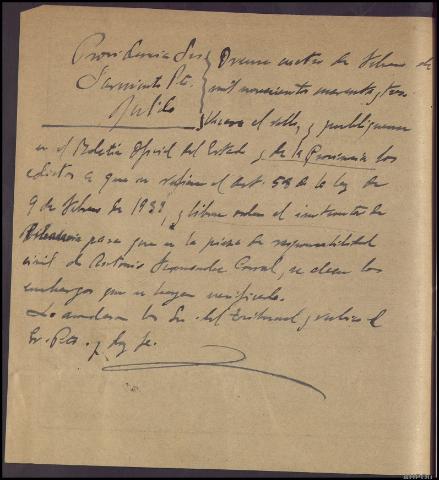 Providencia Sres
Sarmiento Pte.
Pulido
Orense cuatro de Febrero de
mil novecientos cuarenta y tres
el rollo, y publíquense
en el Boletín Oficial del Estado y de la Provincia los
edictos a que se refiere el art. 58 de la ley de
9 de Febrero de 1939, y líbrese orden al instructor de
para que en la pieza de responsabilidad
civil de Antonio Fernandez Corral, se alcen los
embargos que se hayan verificado.
Lo acordaron los Sres. del Tribunal y rubrica el
Sr. Pte. y doy fe.